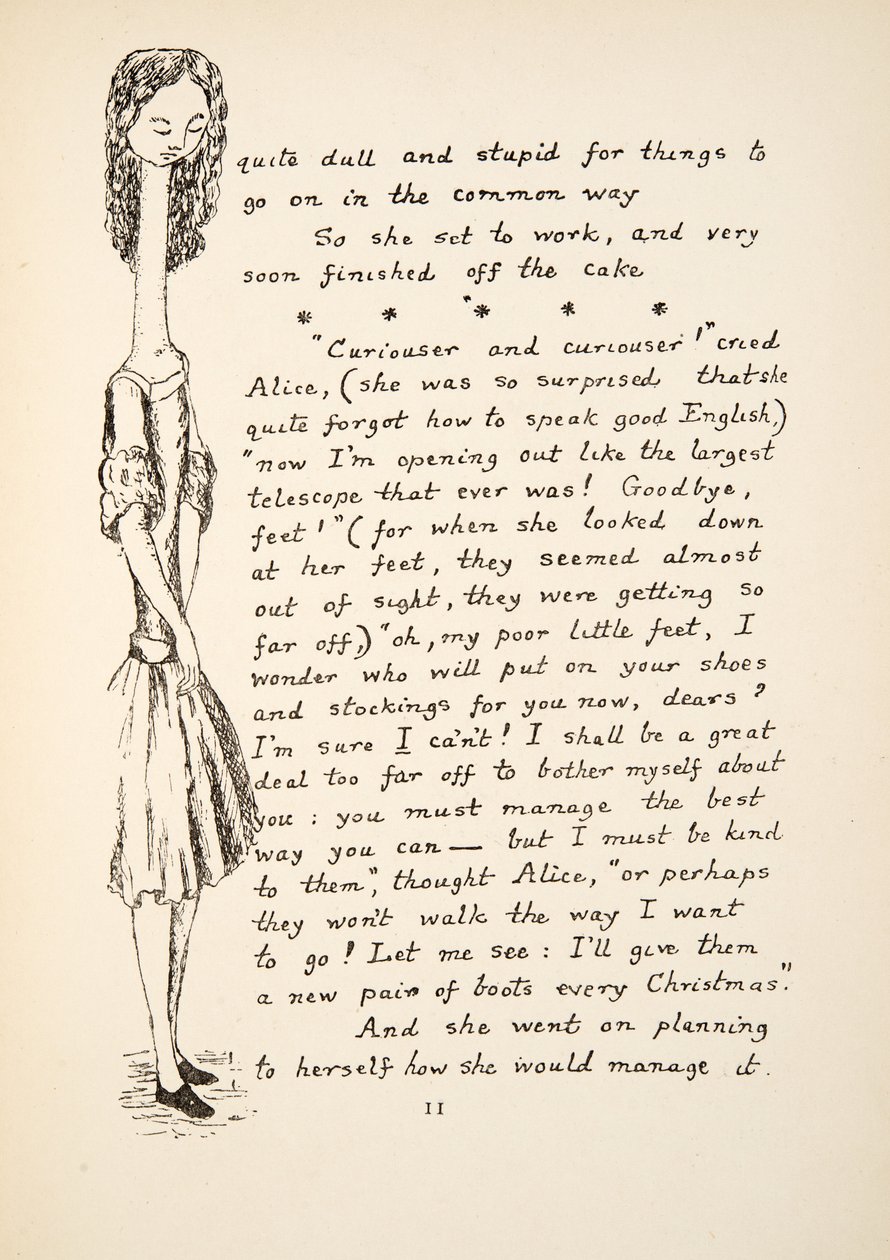 quite dull and stupid for things to
go on in the common way
So she set to work, and very
soon finished off the cake
* * * * *
"Curiouser and curiouser!" cried
Alice, (she was so surprised that she
quite forgot how to speak good English,)
"now I'm opening out like the largest
telescope that ever was! Goodbye,
feet!" (for when she looked down
at her feet, they seemed almost
out of sight, they were getting so
far off,) "oh, my poor little feet, I
wonder who will put on your shoes
and stockings for you now, dears?
I'm sure I ca'n't! I shall be a great
deal too far off to bother myself about
you: you must manage the best
way you can — but I must be kind
to them", thought Alice, "or perhaps
they won't walk the way I want
to go! Let me see: I'll give them
a new pair of boots every Christmas."
And she went on planning
to herself how she would manage it.
11